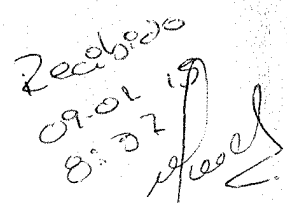 Recibido
09-01 15
8:37